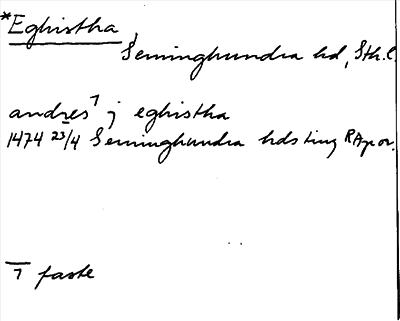 *Eghistha,
Seminghundra hd, Sth.l.
andres⁊ j eghistha
1474 23/4 Seminghundra hds ting RAp or.
⁊ faste